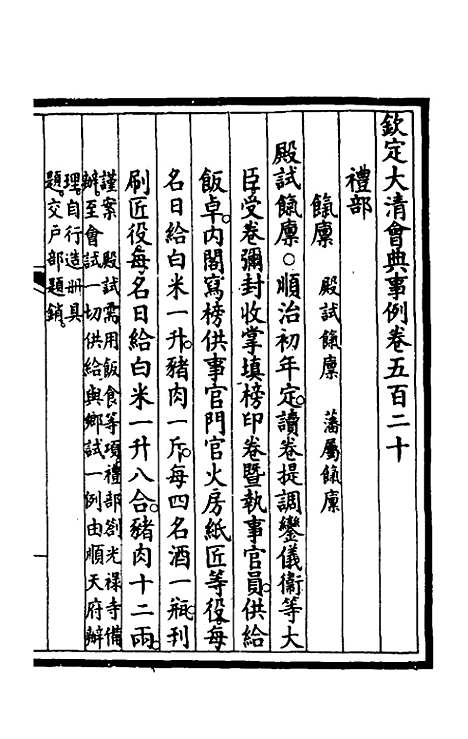 欽定大清會典事例卷五百二十
禮部
餼廩 殿試餼廩 藩屬餼廩
殿試餼廩○順治初年定。讀卷提調鑾儀衞等大
臣受卷彌封收掌填榜印卷暨執事官員。供給
飯卓。內閣寫榜供事官門官火房紙匠等役。每
名日給白米一升。豬肉一斤。每四名酒一瓶。刊
刷匠役。每名日給白米一升八合。豬肉十二兩。
謹案 殿試需用飯食等項禮部劄光祿寺備
辦。至會試一切供給與鄉試一例由順天府辦
理。自行造冊具
題。交戶部題銷。